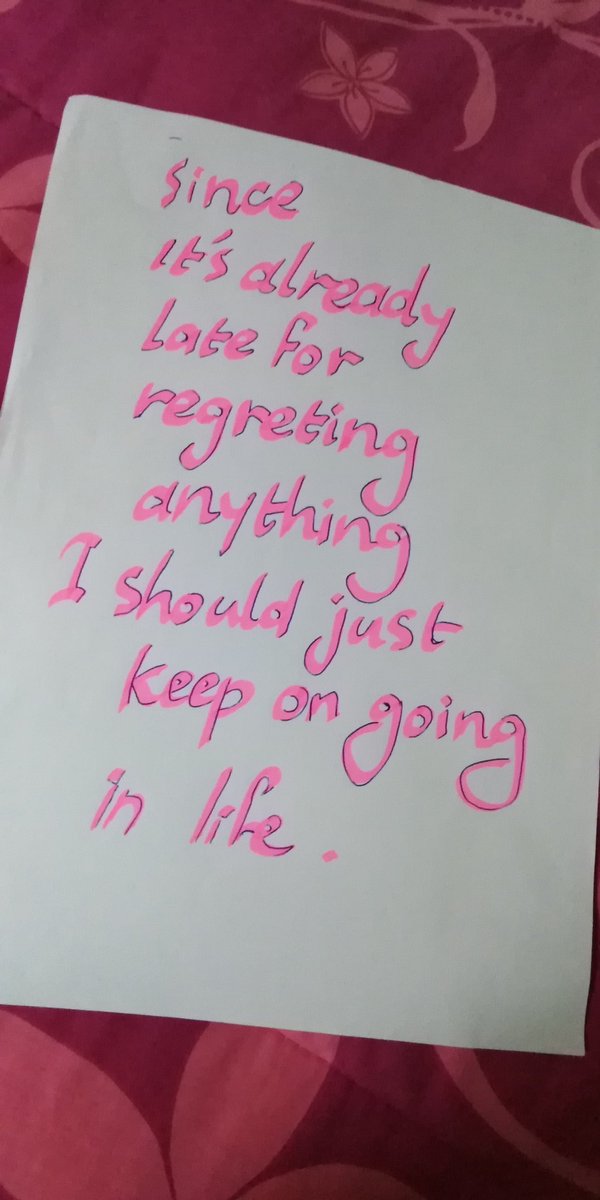 since
it's already
late for
regreting
anything
I should just
keep on going
in life.